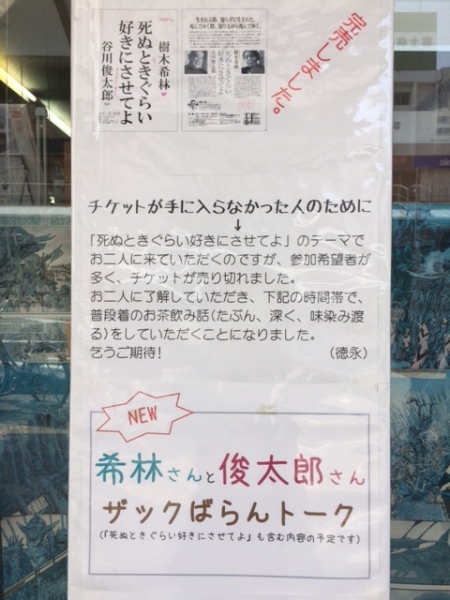 樹木希林
死ぬときぐらい
好きにさせてよ
谷川俊太郎
完売しました。
チケットが手に入らなかった人のために
↓
「死ぬときぐらい好きにさせてよ」のテーマで
お二人に来ていただくのですが、参加希望者が
多く、チケットが売り切れました。
お二人に了解していただき、下記の時間帯で、
普段着のお茶飲み話(たぶん、深く、味染み渡
る)をしていただくことになりました。
乞うご期待!
(徳永)
NEW
希林さんと俊太郎さん
ザックばらんトーク
(「死ぬときぐらい好きにさせてよ」も含む内容の予定です)